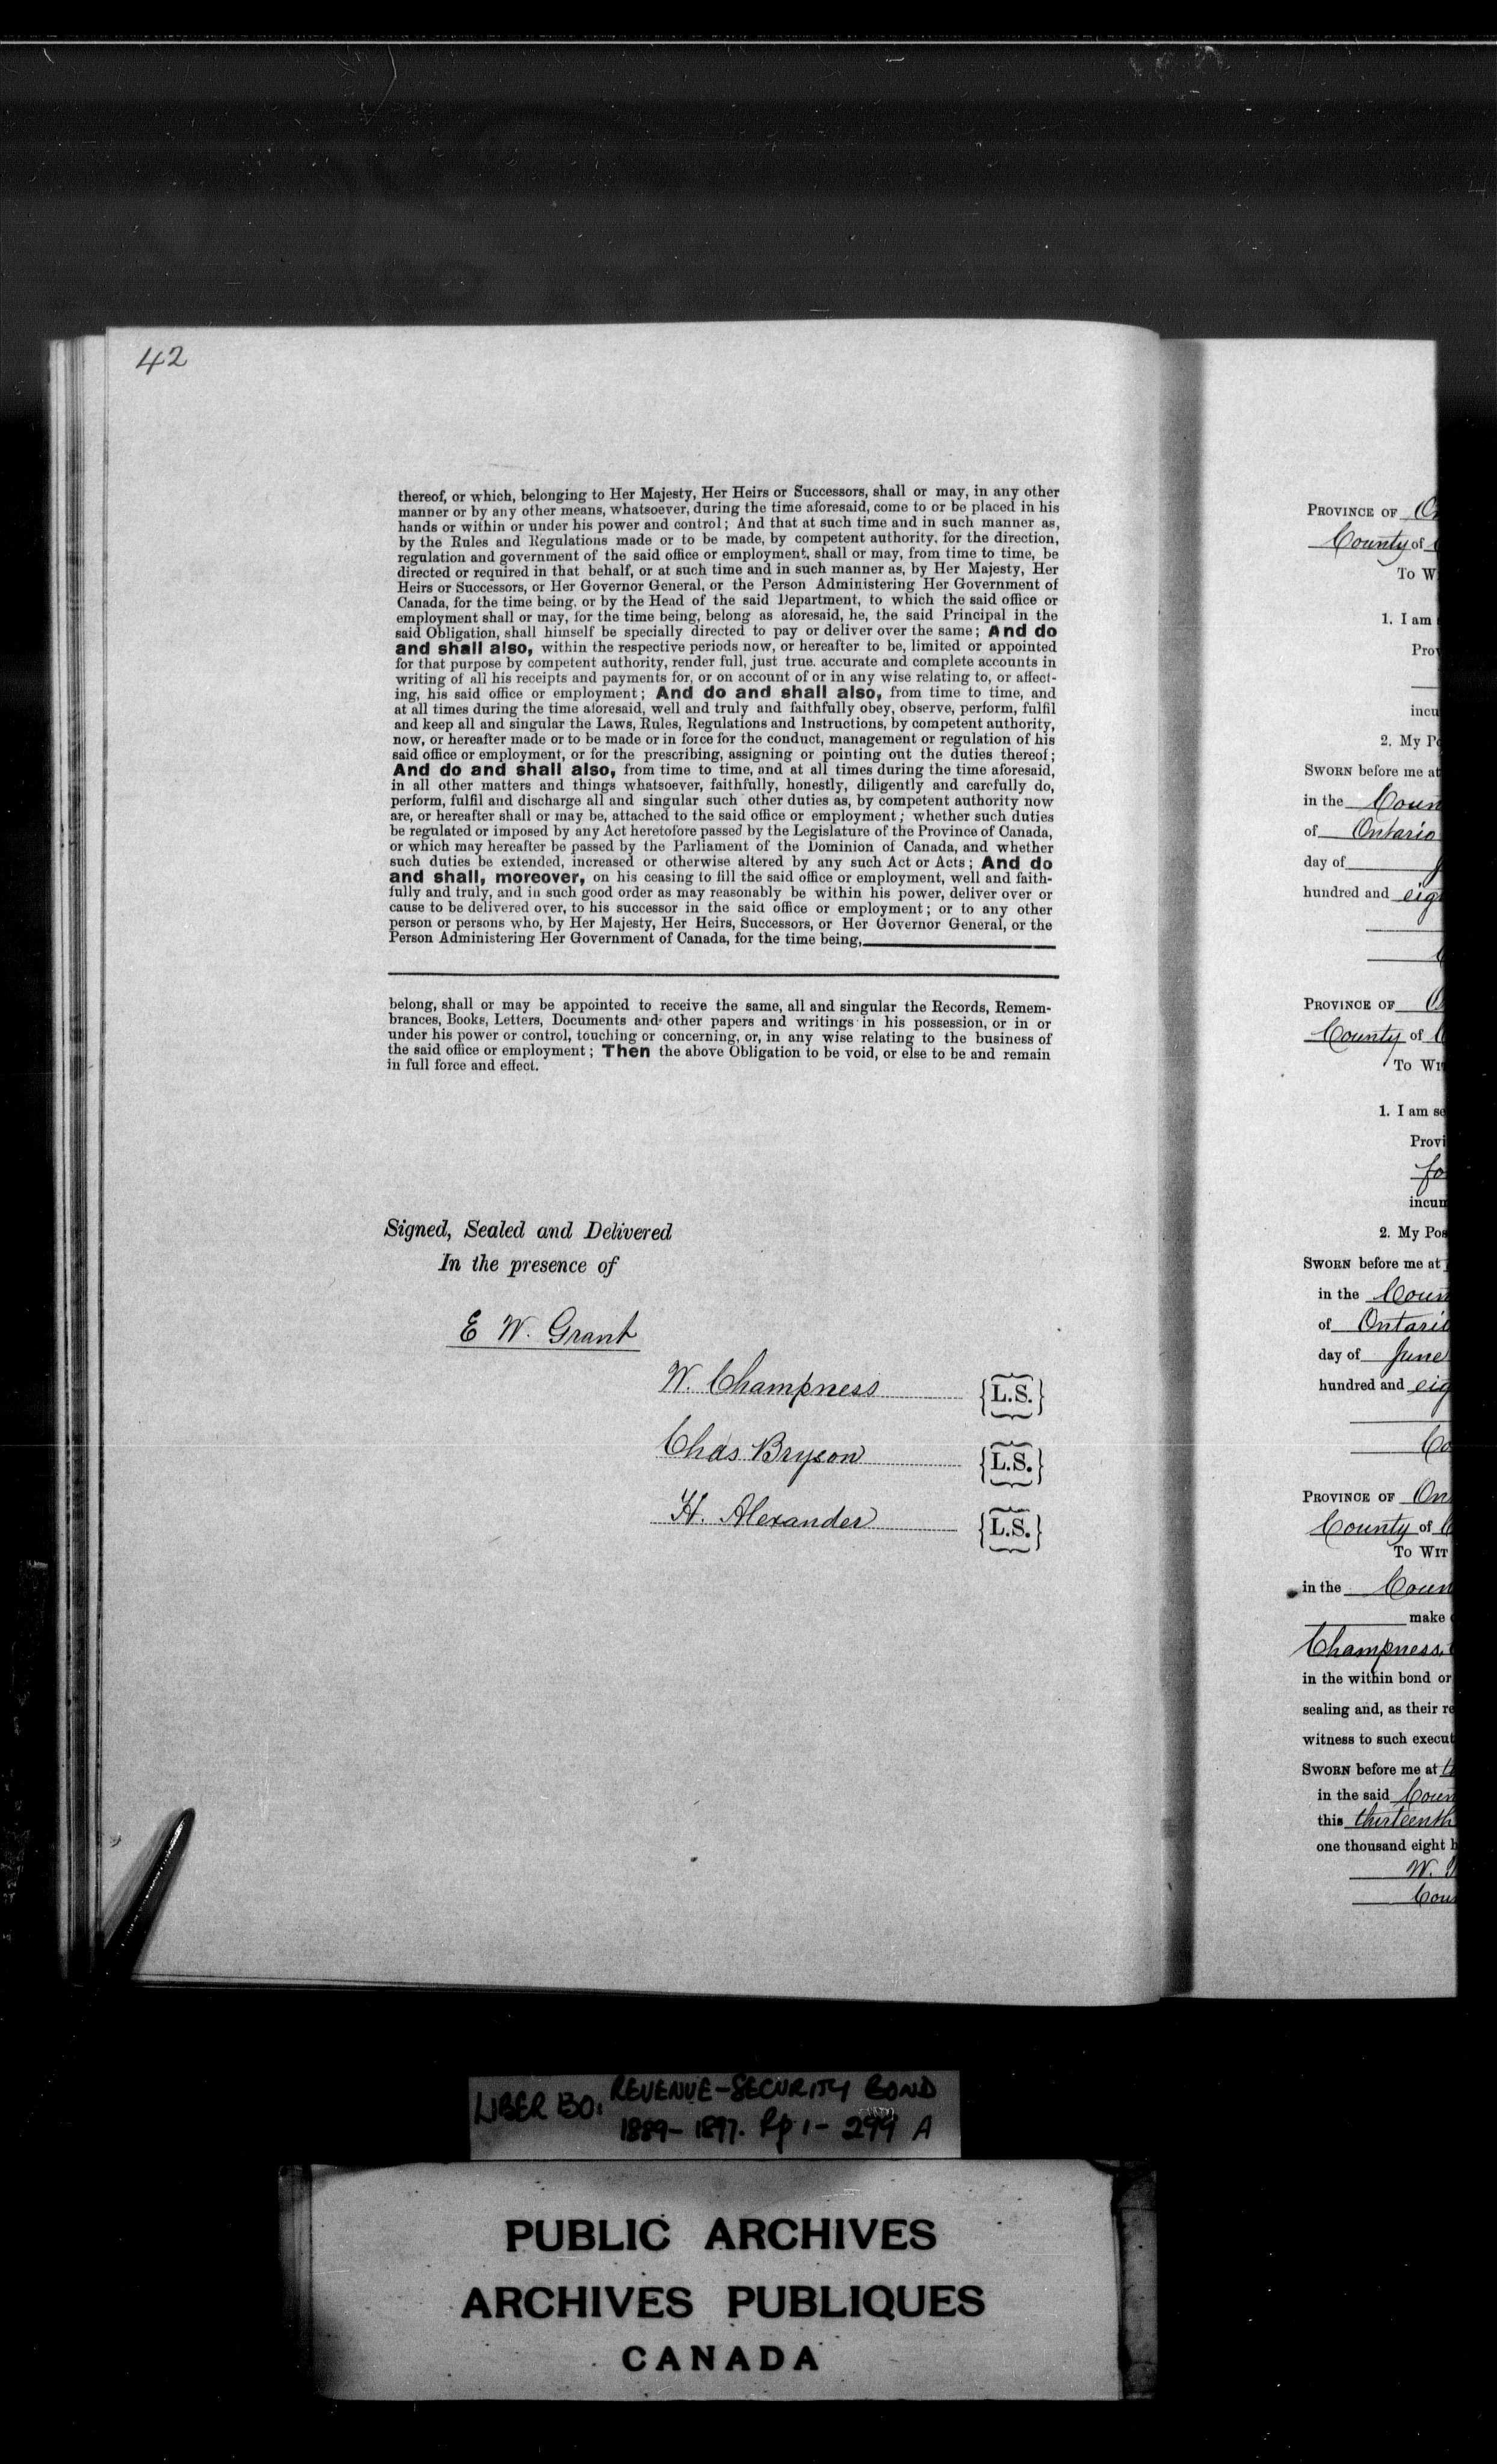 42
thereof, or which, belonging to Her Majesty, Her Heirs or Successors, shall or may, in any other
manner or by any other means, whatsoever, during the time aforesaid, come to or be placed in his
hands or within or under his power and control; And that at such time and in such manner as,
by the Rules and Regulations made or to be made, by competent authority, for the direction,
regulation and government of the said office or employment, shall or may, from time to time, be
directed or required in that behalf, or at such time and in such manner as, by Her Majesty, Her
Heirs or Successors, or Her Governor General, or the Person Administering Her Government of
Canada, for the time being, or by the Head of the said Department, to which the said office or
employment shall or may, for the time being, belong as aforesaid, he, the said Principal in the
said Obligation, shall himself be specially directed to pay or deliver over the same; And do
and shall also, within the respective periods now, or hereafter to be, limited or appointed
for that purpose by competent authority, render full, just true. accurate and complete accounts in
writing of all his receipts and payments for, or on account of or in any wise relating to, or affect-
ing, his said office or employment; And do and shall also, from time to time, and
at all times during the time aforesaid, well and truly and faithfully obey, observe, perform, fulfil
and keep all and singular the Laws, Rules, Regulations and Instructions, by competent authority,
now, or hereafter made or to be made or in force for the conduct, management or regulation of his
said office or employment, or for the prescribing, assigning or pointing out the duties thereof;
And do and shall also, from time to time, and at all times during the time aforesaid,
in all other matters and things whatsoever, faithfully, honestly, diligently and carefully do,
perform, fulfil and discharge all and singular such other duties as, by competent authority now
are, or hereafter shall or may be, attached to the said office or employment; whether such duties
be regulated or imposed by any Act heretofore passed by the Legislature of the Province of Canada,
or which may hereafter be passed by the Parliament of the Dominion of Canada, and whether
such duties be extended, increased or otherwise altered by any such Act or Acts; And do
and shall, moreover, on his ceasing to fill the said office or employment, well and faith-
fully and truly, and in such good order as may reasonably be within his power, deliver over or
cause to be delivered over, to his successor in the said office or employment; or to any other
person or persons who, by Her Majesty, Her Heirs, Successors, or Her Governor General, or the
Person Administering Her Government of Canada, for the time being,
belong, shall or may be appointed to receive the same, all and singular the Records, Remem-
brances, Books, Letters, Documents and other papers and writings in his possession, or in or
under his power or control, touching or concerning, or, in any wise relating to the business of
the said office or employment; Then the above Obligation to be void, or else to be and remain
in full force and effect.
Signed, Sealed and Delivered
In the presence of
E W. Grant
W. Champness {L.S.}
Chas Bryson {L.S.}
H. Alexander {L.S.}
PROVINCE OF
County of
To W
1. I am
Prov
incu
2. My Po
SWORN before me at
in the Coun
of Ontario
day of
hundred and eig
PROVINCE OF
County of
To WIT
1. I am se
Provi
fo
incum
2. My Pos
SWORN before me at
in the Coun
of Ontario
day of June
hundred and eig
Co
PROVINCE OF On
County of
To WIT
in the Coun
make
Champness,
in the within bond or
sealing and, as their re
witness to such execut
SWORN before me at
in the said Coun
this thirteenth
one thousand eight h
W.
Cou
LIBER BO: REVENUE-SECURITY BOND
1889-1897. Pp 1-299 A
PUBLIC ARCHIVES
ARCHIVES PUBLIQUES
CANADA